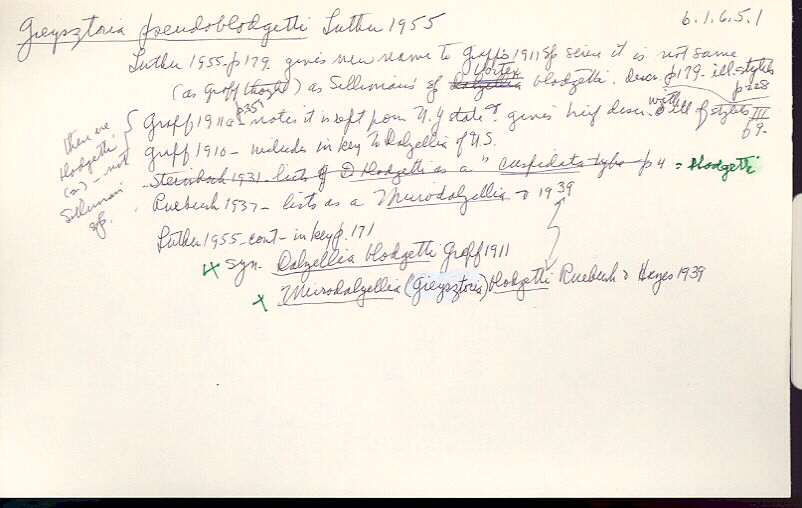 Gieysztoria pseudoblodgetti Luther 1955
6.1.6.5.1
Luther 1955-p179. gives new name to Graff's 1911 sp since it is not same
(as Graff thought) as Silliman's sp Dalyellia Vortex blodgetti. descr. p179. ill. stylets
p228
p351
Graff 1911a - notes it is sp from N.Y state & gives brief descr. with ill of stylets III
f9-
Graff 1910 - includes in key to Dalyellia of U.S.
Steinbock 1931 - lists D blodgetti as a "cuspidata type p4 = blodgetti
Ruebush 1937 - lists as a Microdalyellia & 1939
there are
blodgetti
(as) - not
Silliman
sp.
Luther 1955 - cont - in key p. 171
x syn. Dalyellia blodgetti Graff 1911
x Microdalyellia (Gieysztoria) blodgetti Ruebush & Hayes 1939